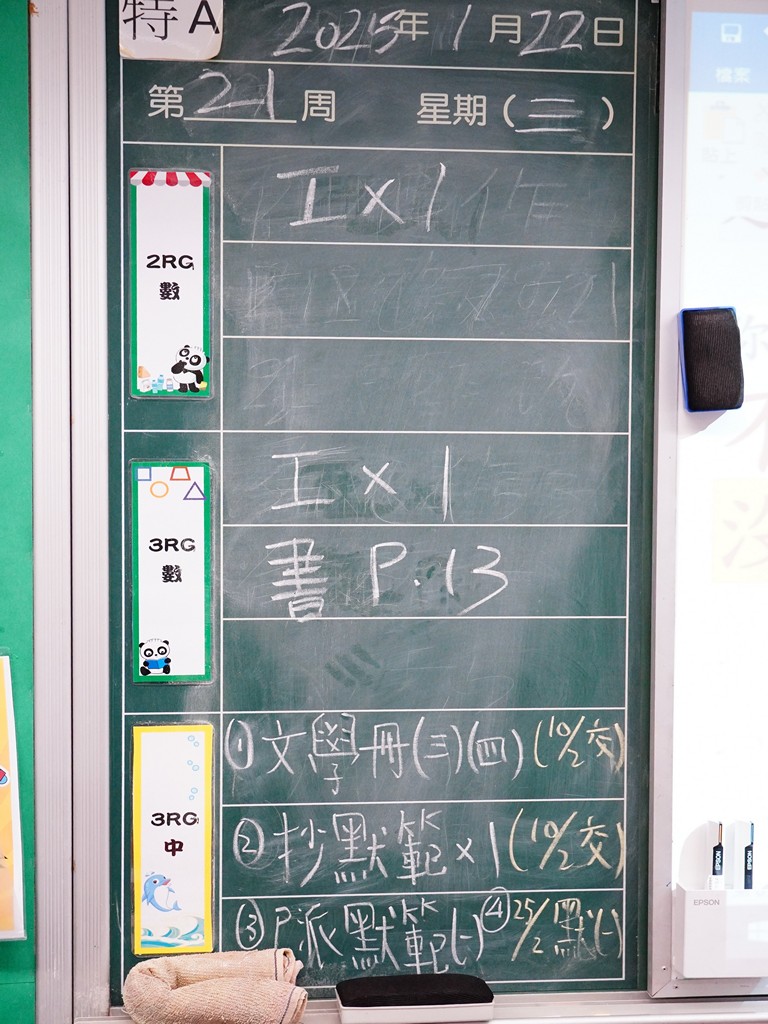 特A
2025年1月22日
第21周 星期(三)
2RG
數
工x1
3RG
數
工x1
書 P.13
3RG
中
①文學冊(三)(四)(10/2交)
②抄默範x1(10/2交)
③P派默範(一)④25/2默(一)
檔案
EPSON
EPSON
EPSON